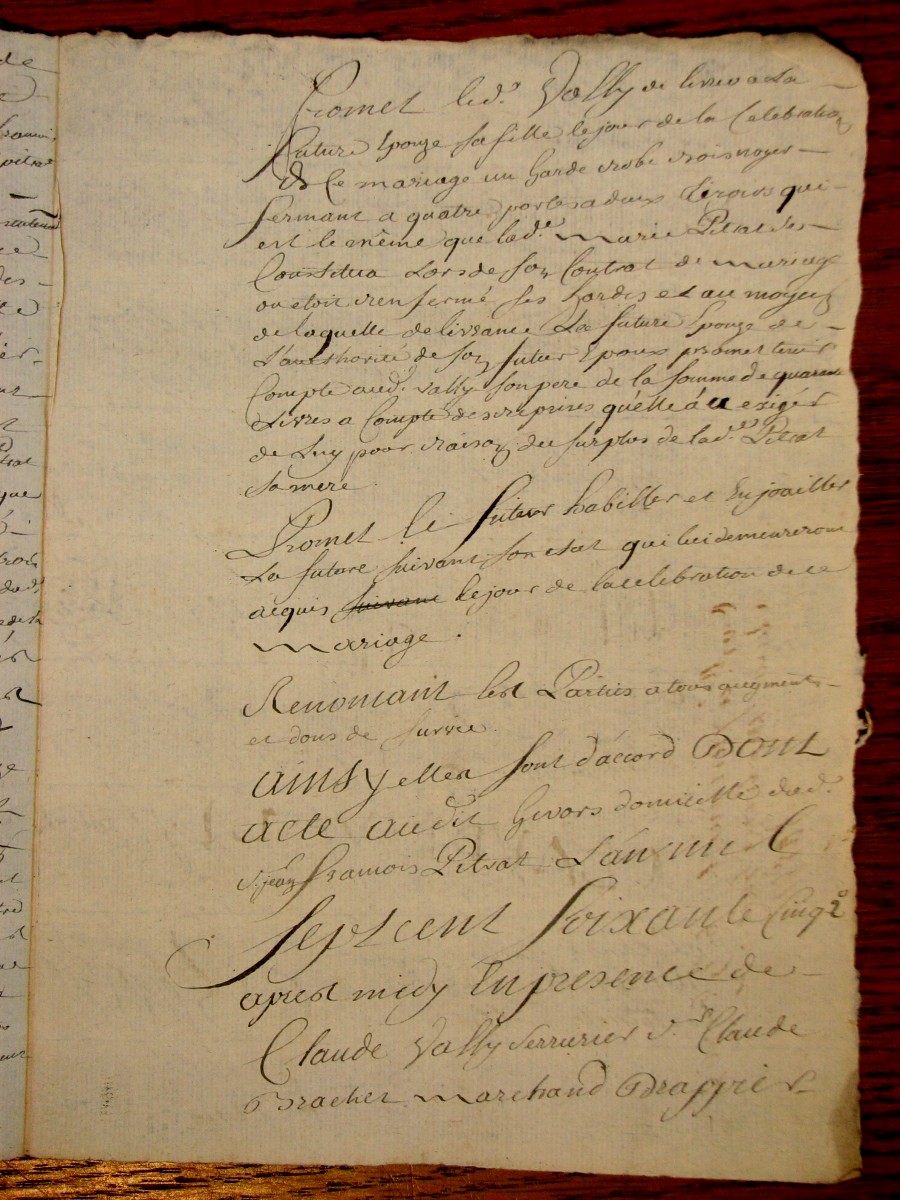 Promet led.t Vally de livrer a La
future Epouze sa fille le jour de la Celebration
de Ce mariage un Garde robe bois noyer
fermant a quatre portes a deux tiroirs qui
est le même que lad.e Marie Pitrat
Constitua Lors de son Contrat de mariage
ou etoit renfermé ses hardes et au moyen
de laquelle delivrance La future Epouze de
L'authorité de son futur Epoux promet tenir
Compte aud.t Vally son pere de la somme de quarante
Livres a Compte des reprises qu'elle a a exiger
de Luy pour raison du surplus de lad.e Pitrat
sa mere.
Promet le futur habiller et Enjoailler
La future suivant son etat qui lui demeureront
acquis suivant le jour de la celebration de ce
mariage.
Renoncant les Parties a tous augments
et dons de survie.
ainsy elles sont d'accord Dont
acte audit Givors domicille dud.
s.r jean francois Pitrat L'an mil
sept cent soixante Cinq
apres midy En presence de
Claude Vally serrurier s.r Claude
Brachet marchand Drappier